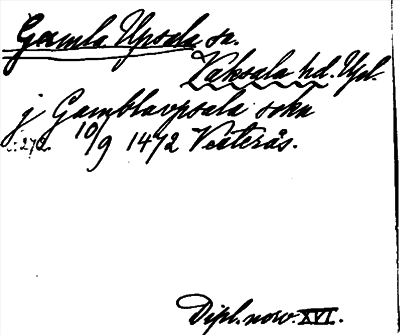 Gamla Upsala sn.
Vaksala hd. Upl.
j Gamblavpsala sokn
s. 272. 10/9 1472 Vesterås.
Dipl. norv. XVI.